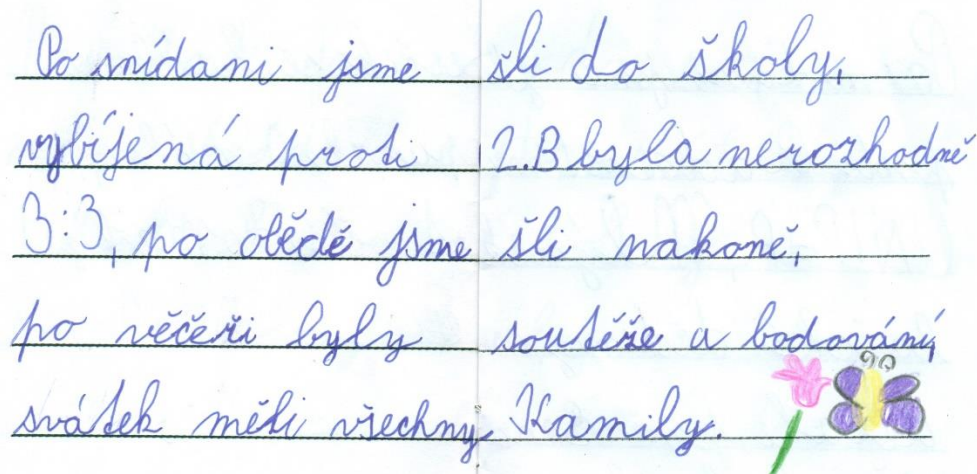 Po snídani jsme šli do školy,
vybíjená proti 2.B byla nerozhodně
3:3, po obědě jsme šli nakoně,
po věčeři byly soutěže a bodování,
svátek měli všechny Kamily.